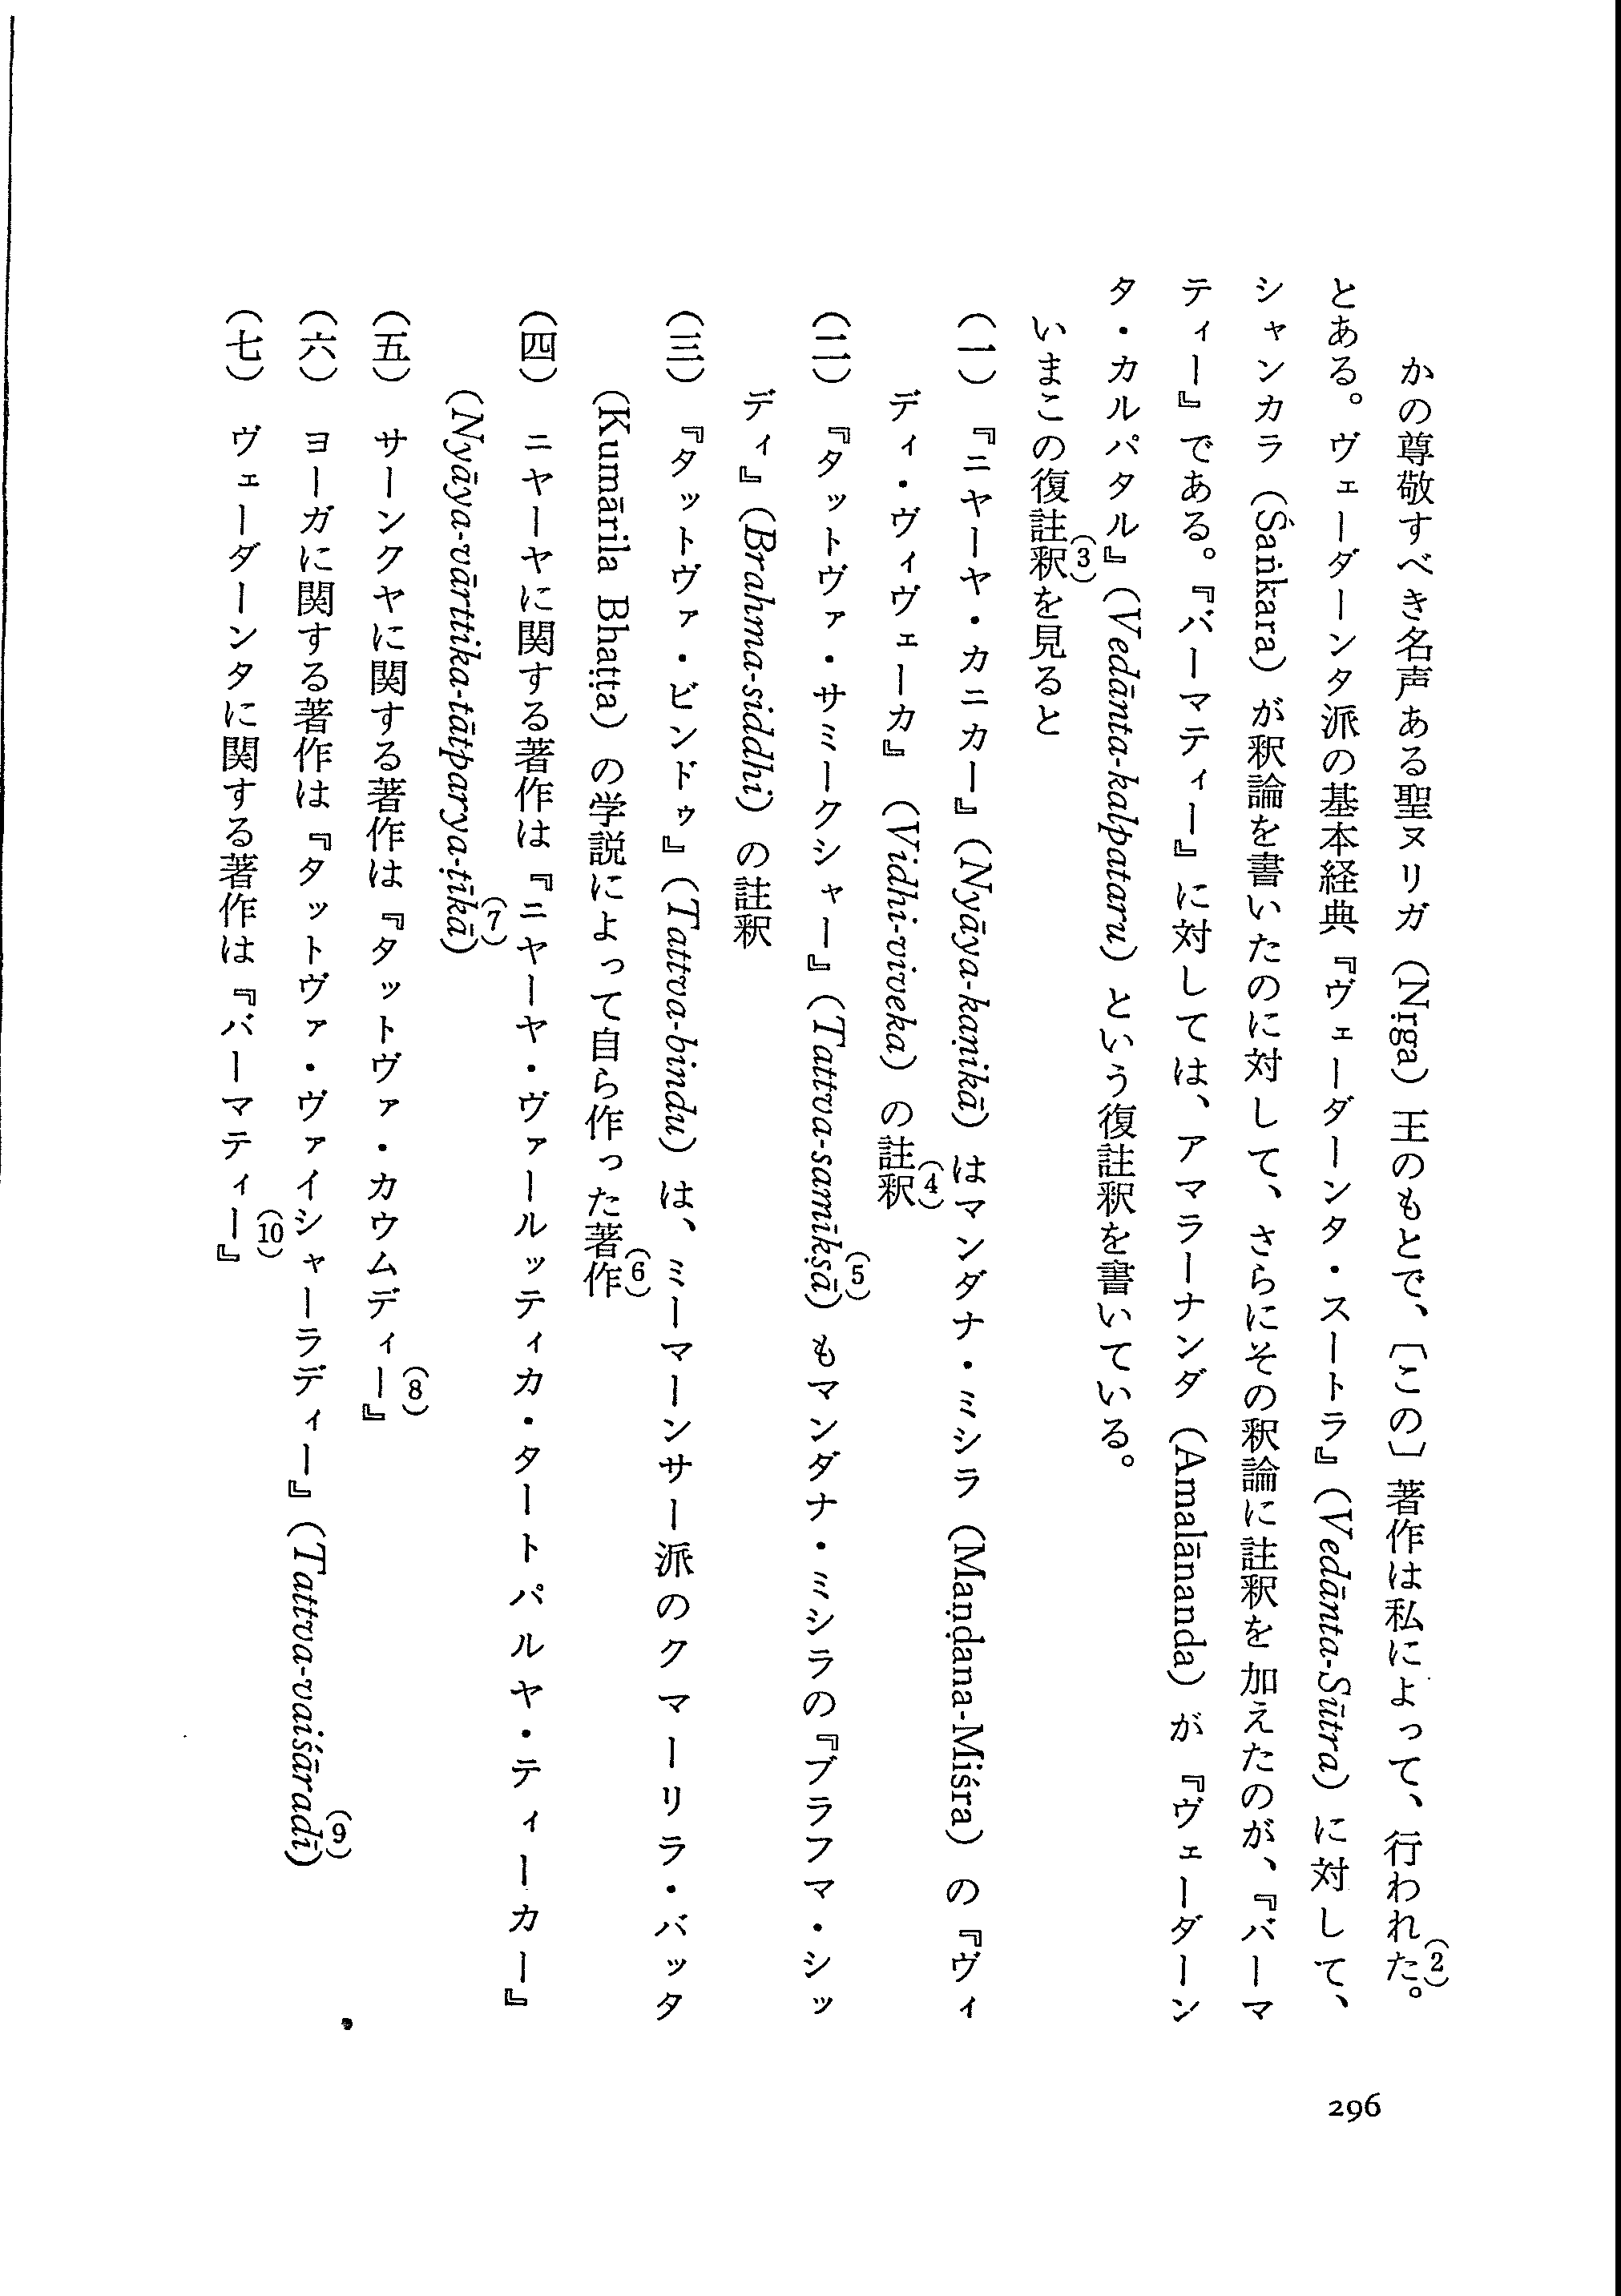 かの尊敬すべき名声ある聖ヌリガ（Nṛga）王のもとで、〔この〕著作は私によって、行われた。(2)
とある。ヴェーダーンタ派の基本経典『ヴェーダーンタ・スートラ』（Vedānta-Sūtra）に対して、
シャンカラ（Śaṅkara）が釈論を書いたのに対して、さらにその釈論に註釈を加えたのが、『バーマ
ティー』である。『バーマティー』に対しては、アマラーナンダ（Amalānanda）が『ヴェーダーン
タ・カルパタル』（Vedānta-kalpataru）という復註釈を書いている。
いまこの復註釈(3)を見ると
（一）『ニヤーヤ・カニカー』（Nyāya-kaṇikā）はマンダナ・ミシラ（Maṇḍana-Miśra）の『ヴィ
ディ・ヴィヴェーカ』（Vidhi-viveka）の註釈(4)
（二）『タットヴァ・サミークシャー』（Tattva-samīkṣā）(5)もマンダナ・ミシラの『ブラフマ・シッ
ディ』（Brahma-siddhi）の註釈
（三）『タットヴァ・ビンドゥ』（Tattva-bindu）は、ミーマーンサー派のクマーリラ・バッタ
（Kumārila Bhaṭṭa）の学説によって自ら作った著作(6)
（四）ニヤーヤに関する著作は『ニヤーヤ・ヴァールッティカ・タートパルヤ・ティーカー』
（Nyāya-vārttika-tātparya-ṭīkā）(7)
（五）サーンクヤに関する著作は『タットヴァ・カウムディー』(8)
（六）ヨーガに関する著作は『タットヴァ・ヴァイシャーラディー』（Tattva-vaiśāradī）(9)
（七）ヴェーダーンタに関する著作は『バーマティー』(10)
296